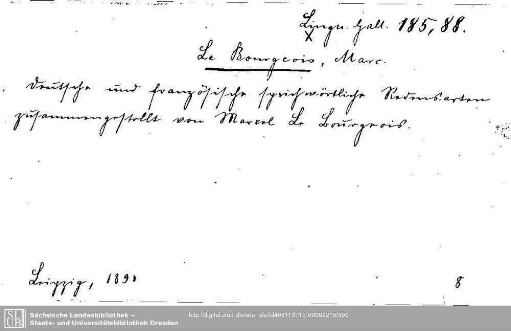 Lingu. Gall. 185, 88.
x
Le Bourgeois, Marc.
Deutsche und französische sprichwörtliche Redensarten
zusammengestellt von Marcel Le Bourgeois.
Leipzig, 189
8
SLUB
Sächsische Landesbibliothek –
Staats- und Universitätsbibliothek Dresden